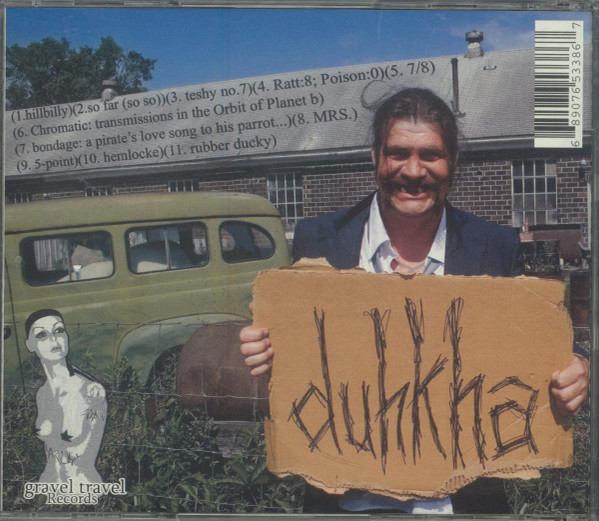 (1.hillbilly)(2.so far (so so))(3. teshy no.7)(4. Ratt:8; Poison:0)(5. 7/8)
(6. Chromatic: transmissions in the Orbit of Planet b)
(7. bondage: a pirate's love song to his parrot...)(8. MRS.)
(9. 5-point)(10. hemlocke)(11. rubber ducky)
6 89076 53386 7
duhkha
gravel travel
Records